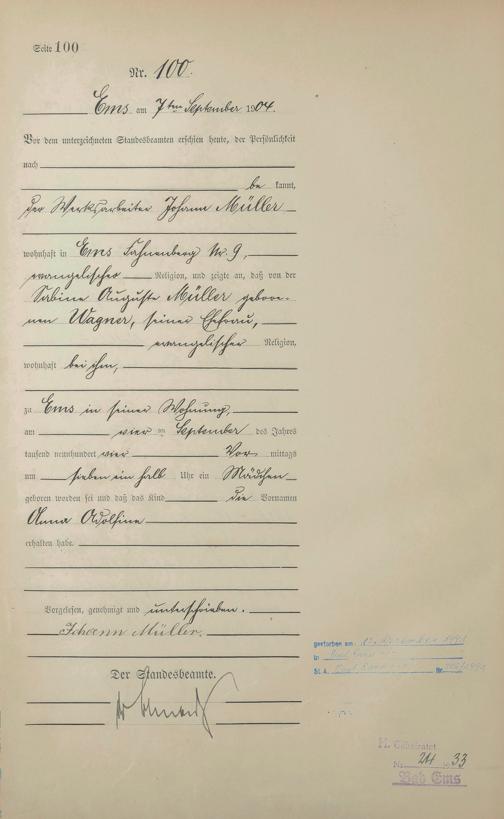 Seite 100
Nr. 100.
Ems am 7ten September 1904.
Vor dem unterzeichneten Standesbeamten erschien heute, der Persönlichkeit
nach
be kannt,
der Werksarbeiter Johann Müller
wohnhaft in Ems Nr. 9,
evangelischer Religion, und zeigte an, daß von der
Sabine Auguste Müller gebore-
nen Wagner, seiner Ehefrau,
evangelischer Religion,
wohnhaft bei ihm,
zu Ems in seiner Wohnung,
am vier ten September des Jahres
tausend neunhundert vier Vor- mittags
um sieben ein halb Uhr ein Mädchen
geboren worden sei und daß das Kind die Vornamen
Anna Adolfine
erhalten habe.
Vorgelesen, genehmigt und unterschrieben.
Johann Müller.
Der Standesbeamte.
gestorben am 1991
in
St. A. Nr.
H. Geheiratet
Nr. 24 1933
Bad Ems